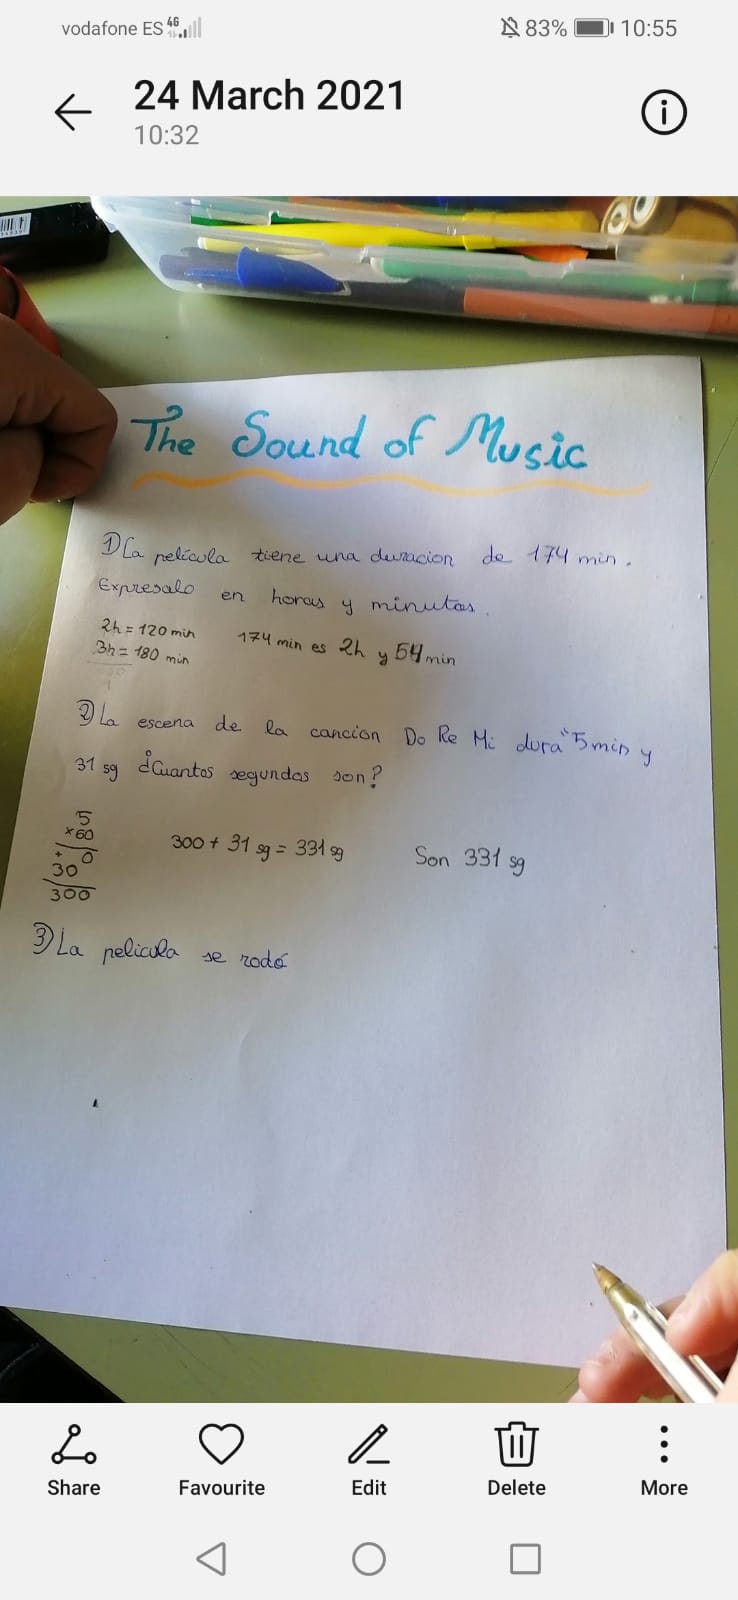 vodafone ES 4G 83% 10:55
24 March 2021
10:32
The Sound of Music
1) La película tiene una duracion de 174 min.
Expresalo en horas y minutos.
2h = 120 min 174 min es 2h y 54 min
3h = 180 min
2) La escena de la cancion Do Re Mi dura 5 min y
31 sg ¿Cuantos segundos son?
5
x 60
+ 0
30
300
300 + 31 sg = 331 sg Son 331 sg
3) La pelicula se rodó
Share Favourite Edit Delete More